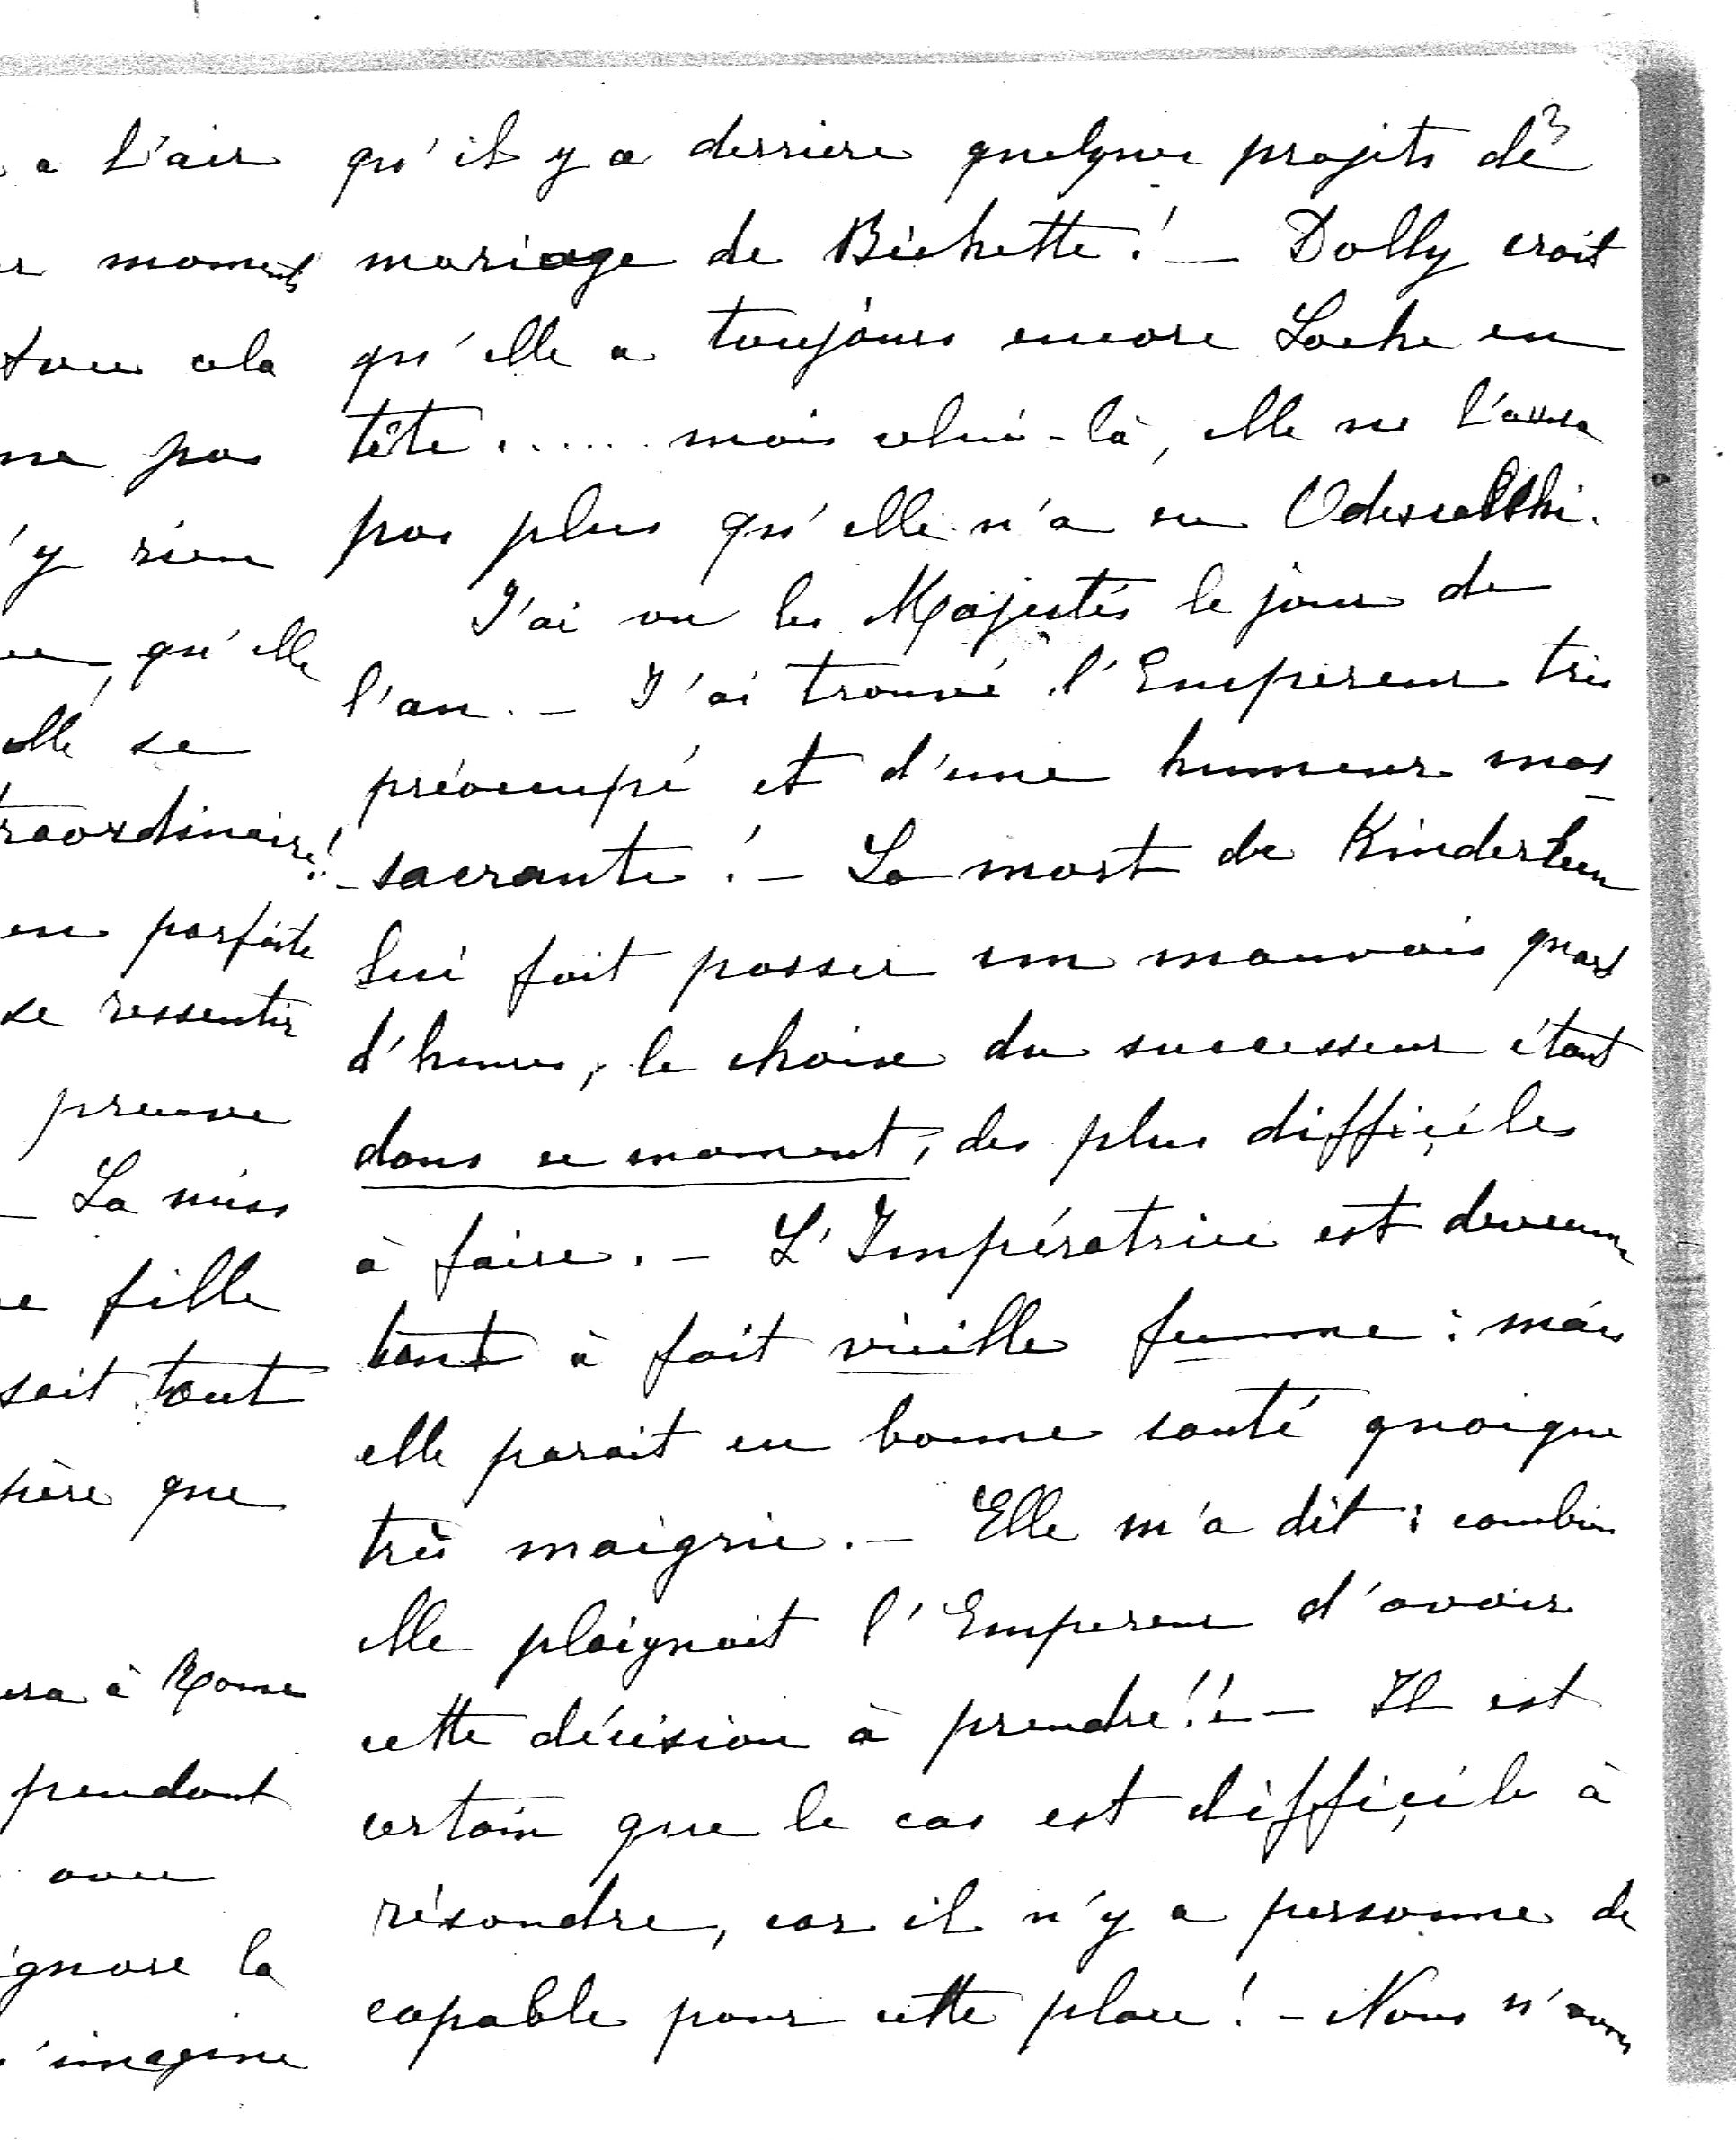 a l'air
moments
cela
pas
'y rien
qu'elle
elle se
traordinaire!
en parfaite
se ressentir
preuve
_ La miss
fille
sait tout
père que
à Rome
pendant
avec
ignore la
'imagine
3
qu'il y a derriere quelques projets de
mariage de Bichette! _ Dolly croit
qu'elle a toujours encore Loche en
tête ..... mais celui-là, elle ne l'aura
pas plus qu'elle n'a eu Odescalchi.
J'ai vu les Majestés le jour de
l'an. _ J'ai trouvé l'Empereur très
préoccupé et d'une humeur mas_
_sacrante! _ La mort de Kinderlen
lui fait passer un mauvais quart
d'heure, le choix du successeur étant
dans ce moment, des plus difficiles
à faire. _ L'Impératrice est devenue
tout à fait vieille femme: mais
elle parait en bonne santé quoique
très maigrie. _ Elle m'a dit: combien
elle plaignait l'Empereur d'avoir
cette décision à prendre!! _ Il est
certain que le cas est difficile à
résoudre, car il n'y a personne de
capable pour cette place! _ Nous n'avons